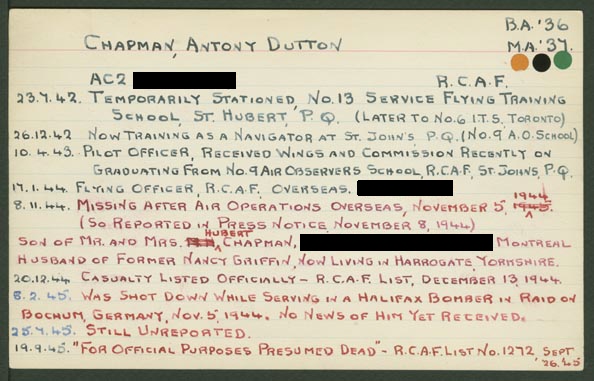 B.A.'36
CHAPMAN, ANTONY DUTTON
M.A.'37.
AC2 R.C.A.F.
23.7.42. TEMPORARILY STATIONED, NO.13 SERVICE FLYING TRAINING
SCHOOL, ST. HUBERT, P.Q. (LATER TO NO.6 I.T.S. TORONTO)
26.12.42 NOW TRAINING AS A NAVIGATOR AT ST. JOHN'S P.Q. (NO.9 A.O.SCHOOL)
10.4.43. PILOT OFFICER, RECEIVED WINGS AND COMMISSION RECENTLY ON
GRADUATING FROM NO.9 AIR OBSERVERS SCHOOL, R.C.A.F. ST. JOHNS, P.Q.
17.1.44. FLYING OFFICER, R.C.A.F. OVERSEAS.
8.11.44. MISSING AFTER AIR OPERATIONS OVERSEAS, NOVEMBER 5, 1944
(SO REPORTED IN PRESS NOTICE NOVEMBER 8, 1944)
SON OF MR. AND MRS. HUBERT CHAPMAN, MONTREAL
HUSBAND OF FORMER NANCY GRIFFIN, NOW LIVING IN HARROGATE, YORKSHIRE.
20.12.44 CASUALTY LISTED OFFICIALLY - R.C.A.F. LIST, DECEMBER 13, 1944.
8.2.45. WAS SHOT DOWN WHILE SERVING IN A HALIFAX BOMBER IN RAID ON
BOCHUM, GERMANY, NOV. 5, 1944. NO NEWS OF HIM YET RECEIVED.
25.4.45. STILL UNREPORTED.
19.9.45. "FOR OFFICIAL PURPOSES PRESUMED DEAD" - R.C.A.F. LIST NO. 1272, SEPT
26.'45